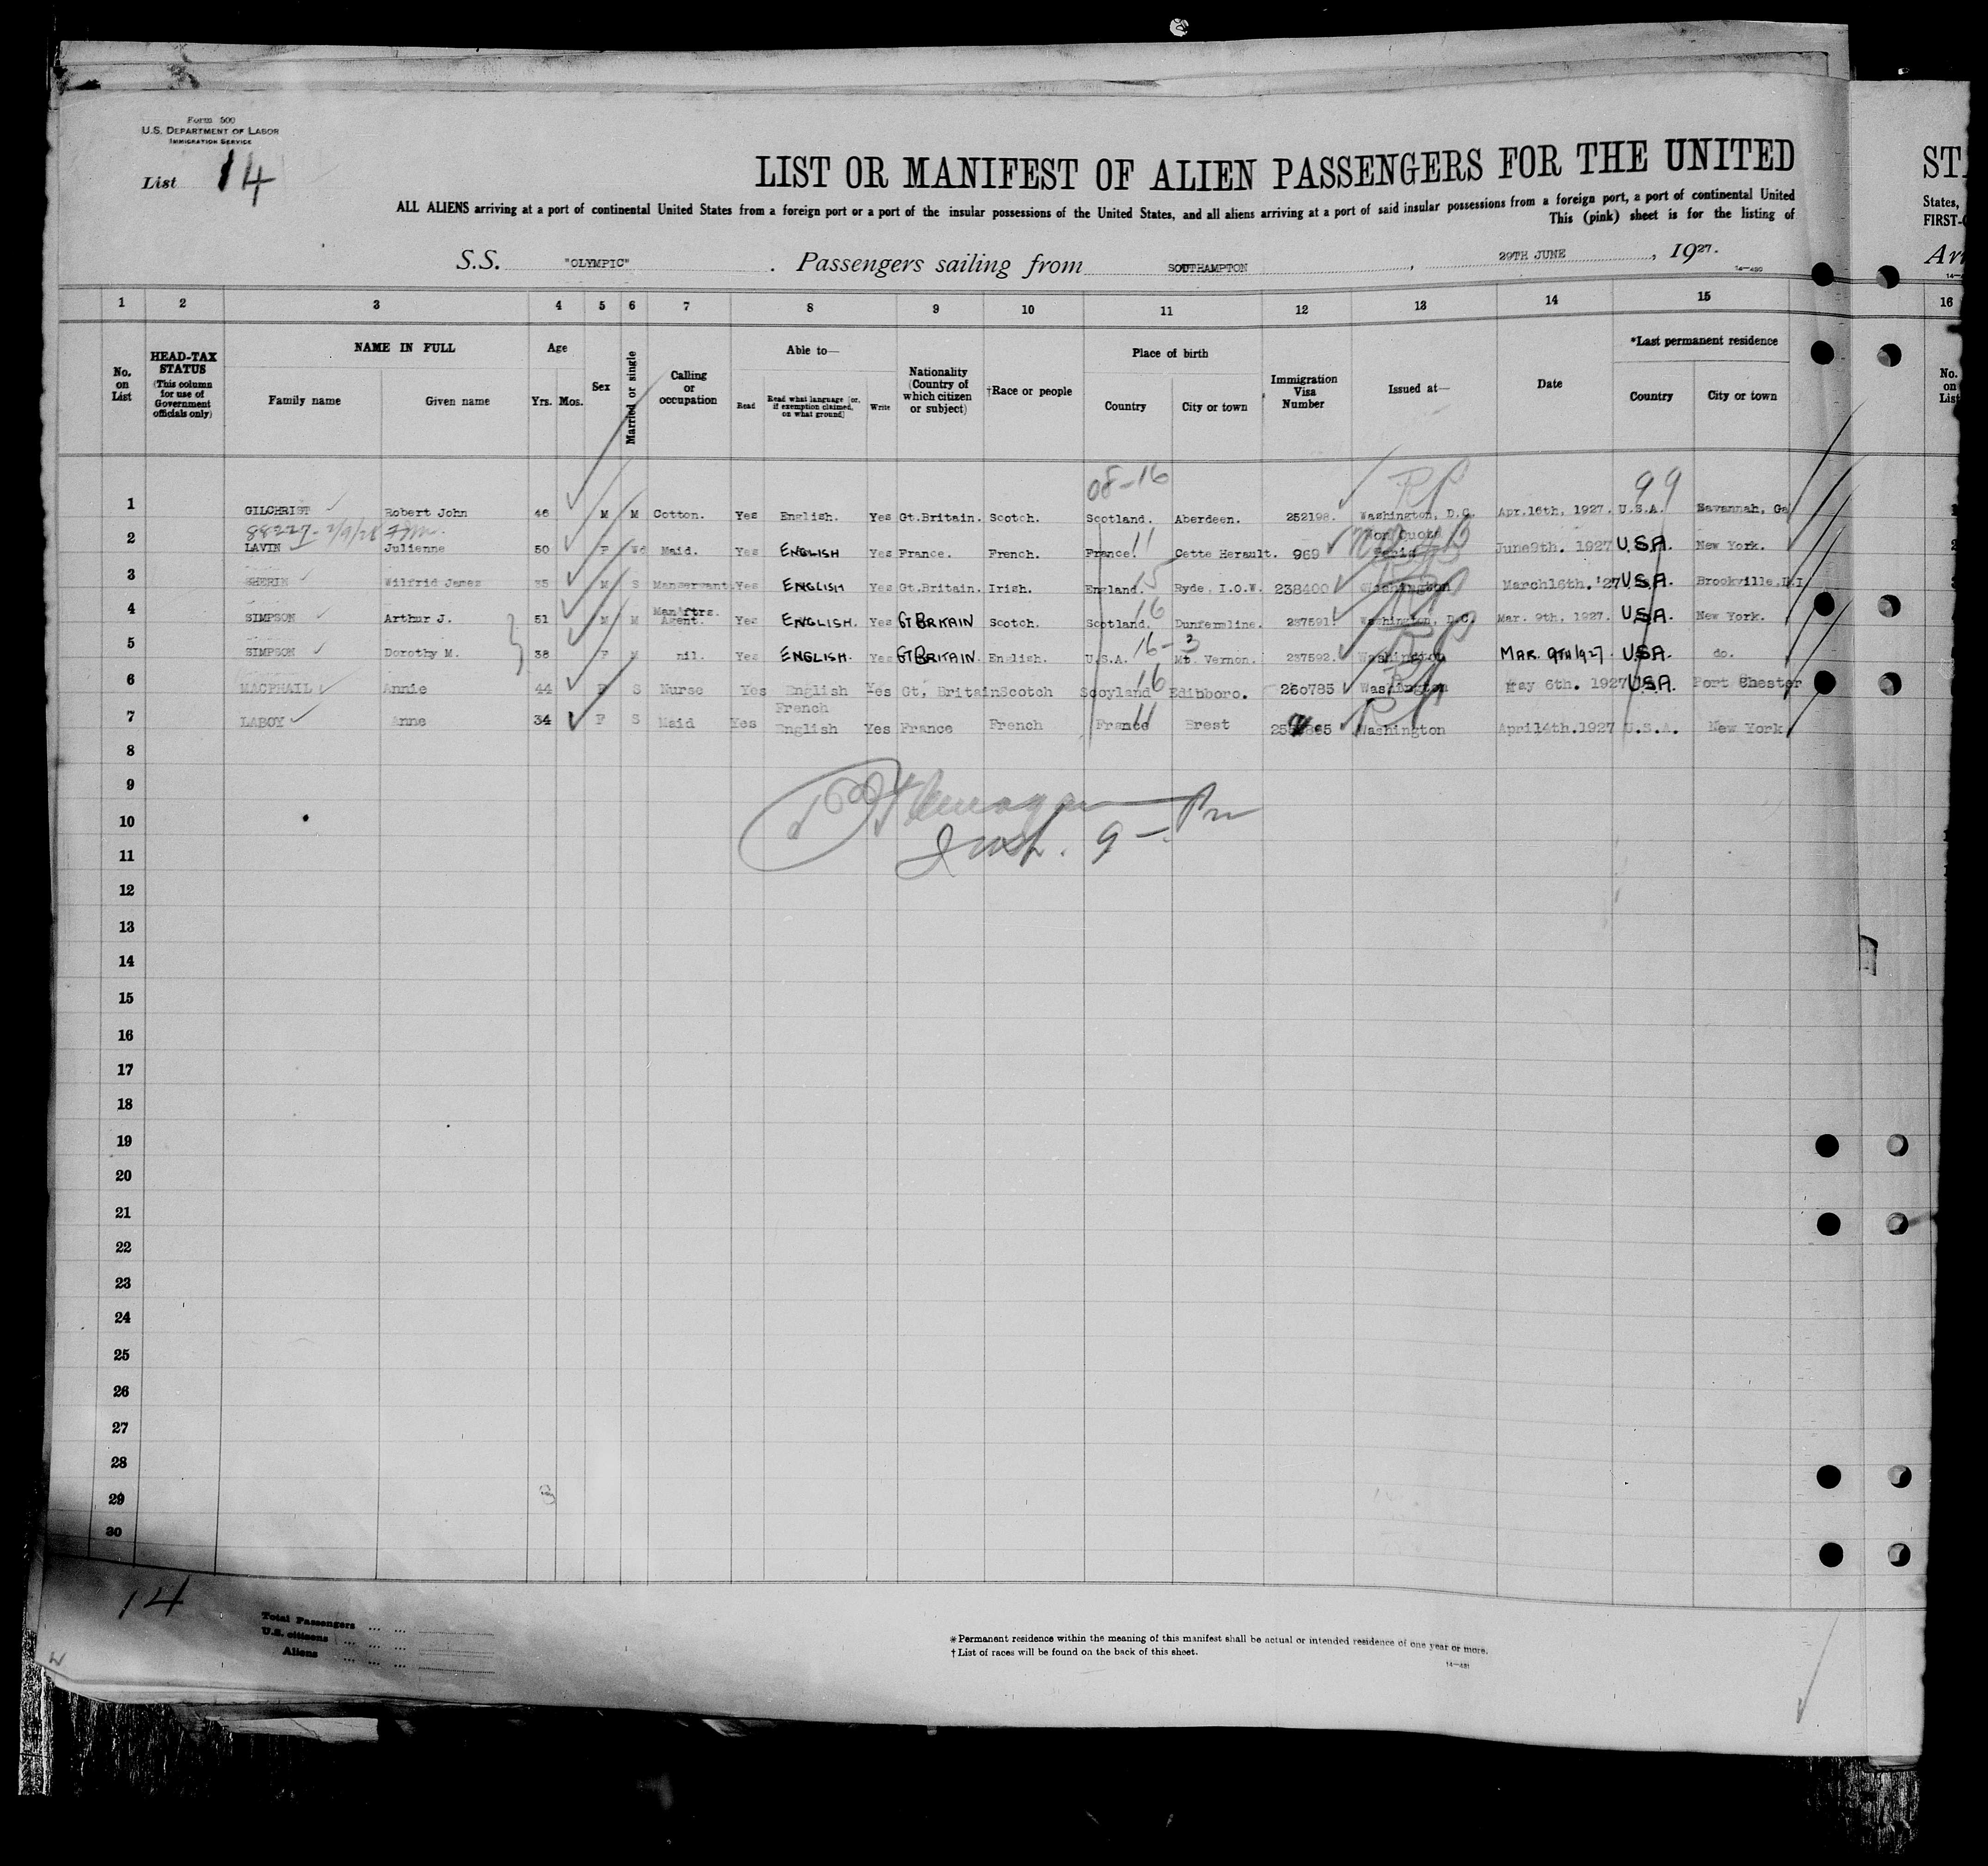 Form 500
U.S. DEPARTMENT OF LABOR
IMMIGRATION SERVICE
List 14
LIST OR MANIFEST OF ALIEN PASSENGERS FOR THE UNITED
ALL ALIENS arriving at a port of continental United States from a foreign port or a port of the insular possessions of the United States, and all aliens arriving at a port of said insular possessions from a foreign port, a port of continental United
This (pink) sheet is for the listing of
S.S. "OLYMPIC" . Passengers sailing from SOUTHAMPTON , 29TH JUNE , 1927.
14—480
ST
States,
FIRST-
Ar
1 2 3 4 5 6 7 8 9 10 11 12 13 14 15 16
No. on List
HEAD-TAX STATUS (This column for use of Government officials only)
NAME IN FULL
Family name Given name
Age
Yrs. Mos.
Sex
Married or single
Calling or occupation
Able to—
Read Read what language [or, if exemption claimed, on what ground] Write
Nationality (Country of which citizen or subject)
†Race or people
Place of birth
Country City or town
Immigration Visa Number
Issued at—
Date
*Last permanent residence
Country City or town
No. on List
08-16 99
1 GILCHRIST Robert John 46 M M Cotton. Yes English. Yes Gt.Britain. Scotch. Scotland. Aberdeen. 252198. Washington, D.C. Apr.16th. 1927. U.S.A. Savannah, Ga
Non Quota
2 LAVIN Julienne 50 F Wd Maid. Yes ENGLISH Yes France. French. France. 11 Cette Herault. 969 Paris June9th. 1927 U.S.A. New York.
3 SHERIN Wilfrid James 35 M S Manservant Yes ENGLISH Yes Gt.Britain. Irish. England. 15 Ryde, I.O.W. 238400 Washington March16th. '27 U.S.A. Brookville,L.I.
4 SIMPSON Arthur J. 51 M M Man'ftrs. Agent. Yes ENGLISH. Yes GT BRITAIN Scotch. Scotland. 16 Dunfermline. 237591. Washington, D.C. Mar. 9th. 1927. U.S.A. New York.
5 SIMPSON Dorothy M. 38 F M nil. Yes ENGLISH. Yes GT BRITAIN. English. U.S.A. 16-3 Mt. Vernon. 237592. Washington MAR. 9TH 1927 U.S.A. do.
6 MACPHAIL Annie 44 F S Nurse Yes English Yes Gt, Britain Scotch Scoyland 16 Edibboro. 260785 Washington May 6th. 1927 U.S.A. Port Chester
7 LABOY Anne 34 F S Maid Yes French English Yes France French France 11 Brest Washington April4th.1927 U.S.A. New York
8
9
10
11
12
13
14
15
16
17
18
19
20
21
22
23
24
25
26
27
28
29
30
14
Total Passengers ... ...
U.S. citizens ... ... ...
Aliens ... ... ...
*Permanent residence within the meaning of this manifest shall be actual or intended residence of one year or more.
†List of races will be found on the back of this sheet.
14—481